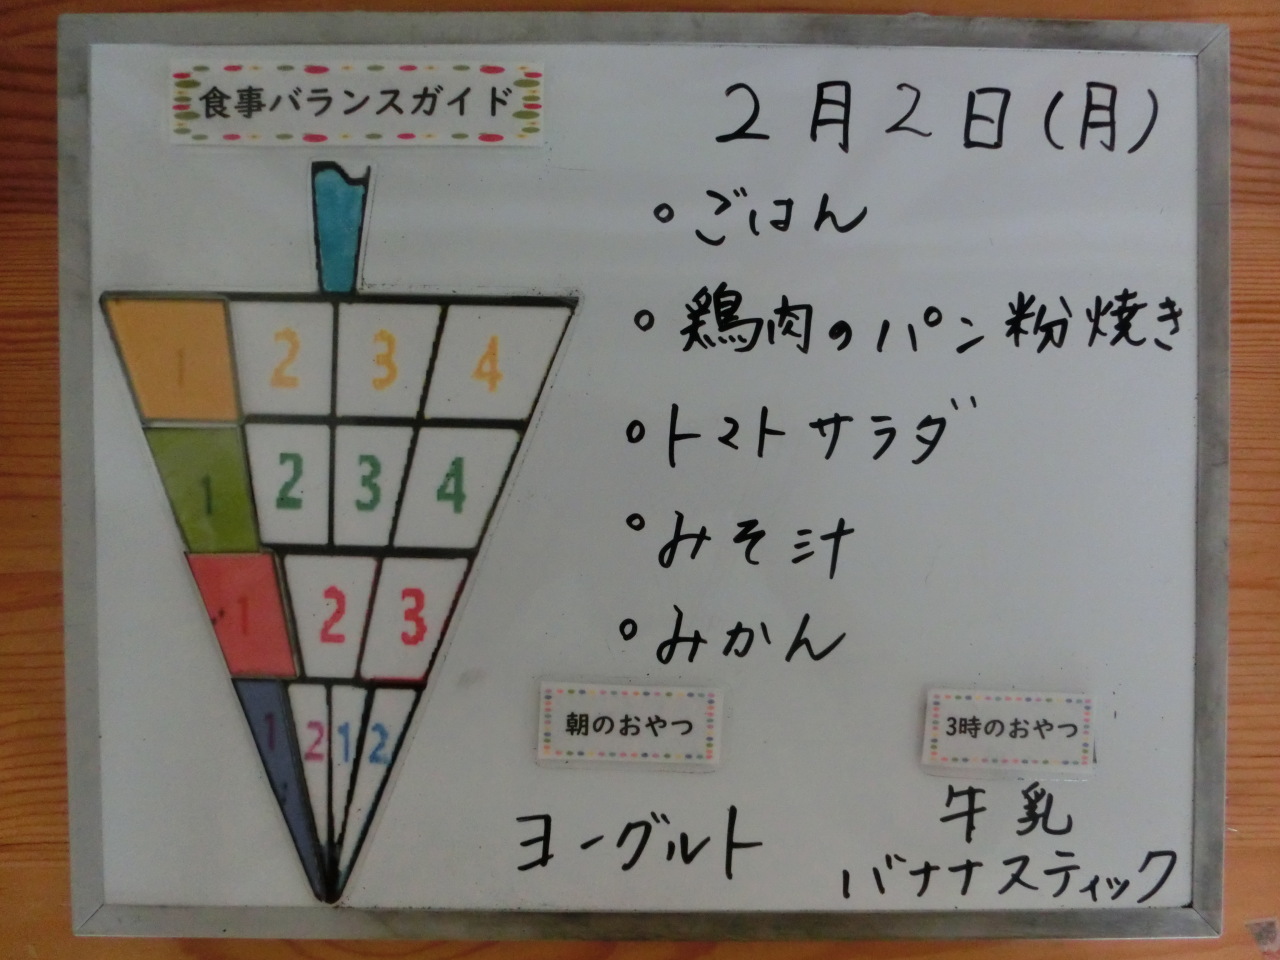 食事バランスガイド
2月2日(月)
○ ごはん
○ 鶏肉のパン粉焼き
○ トマトサラダ
○ みそ汁
○ みかん
1 2 3 4
1 2 3 4
1 2 3
1 2 1 2
朝のおやつ
ヨーグルト
3時のおやつ
牛乳
バナナスティック